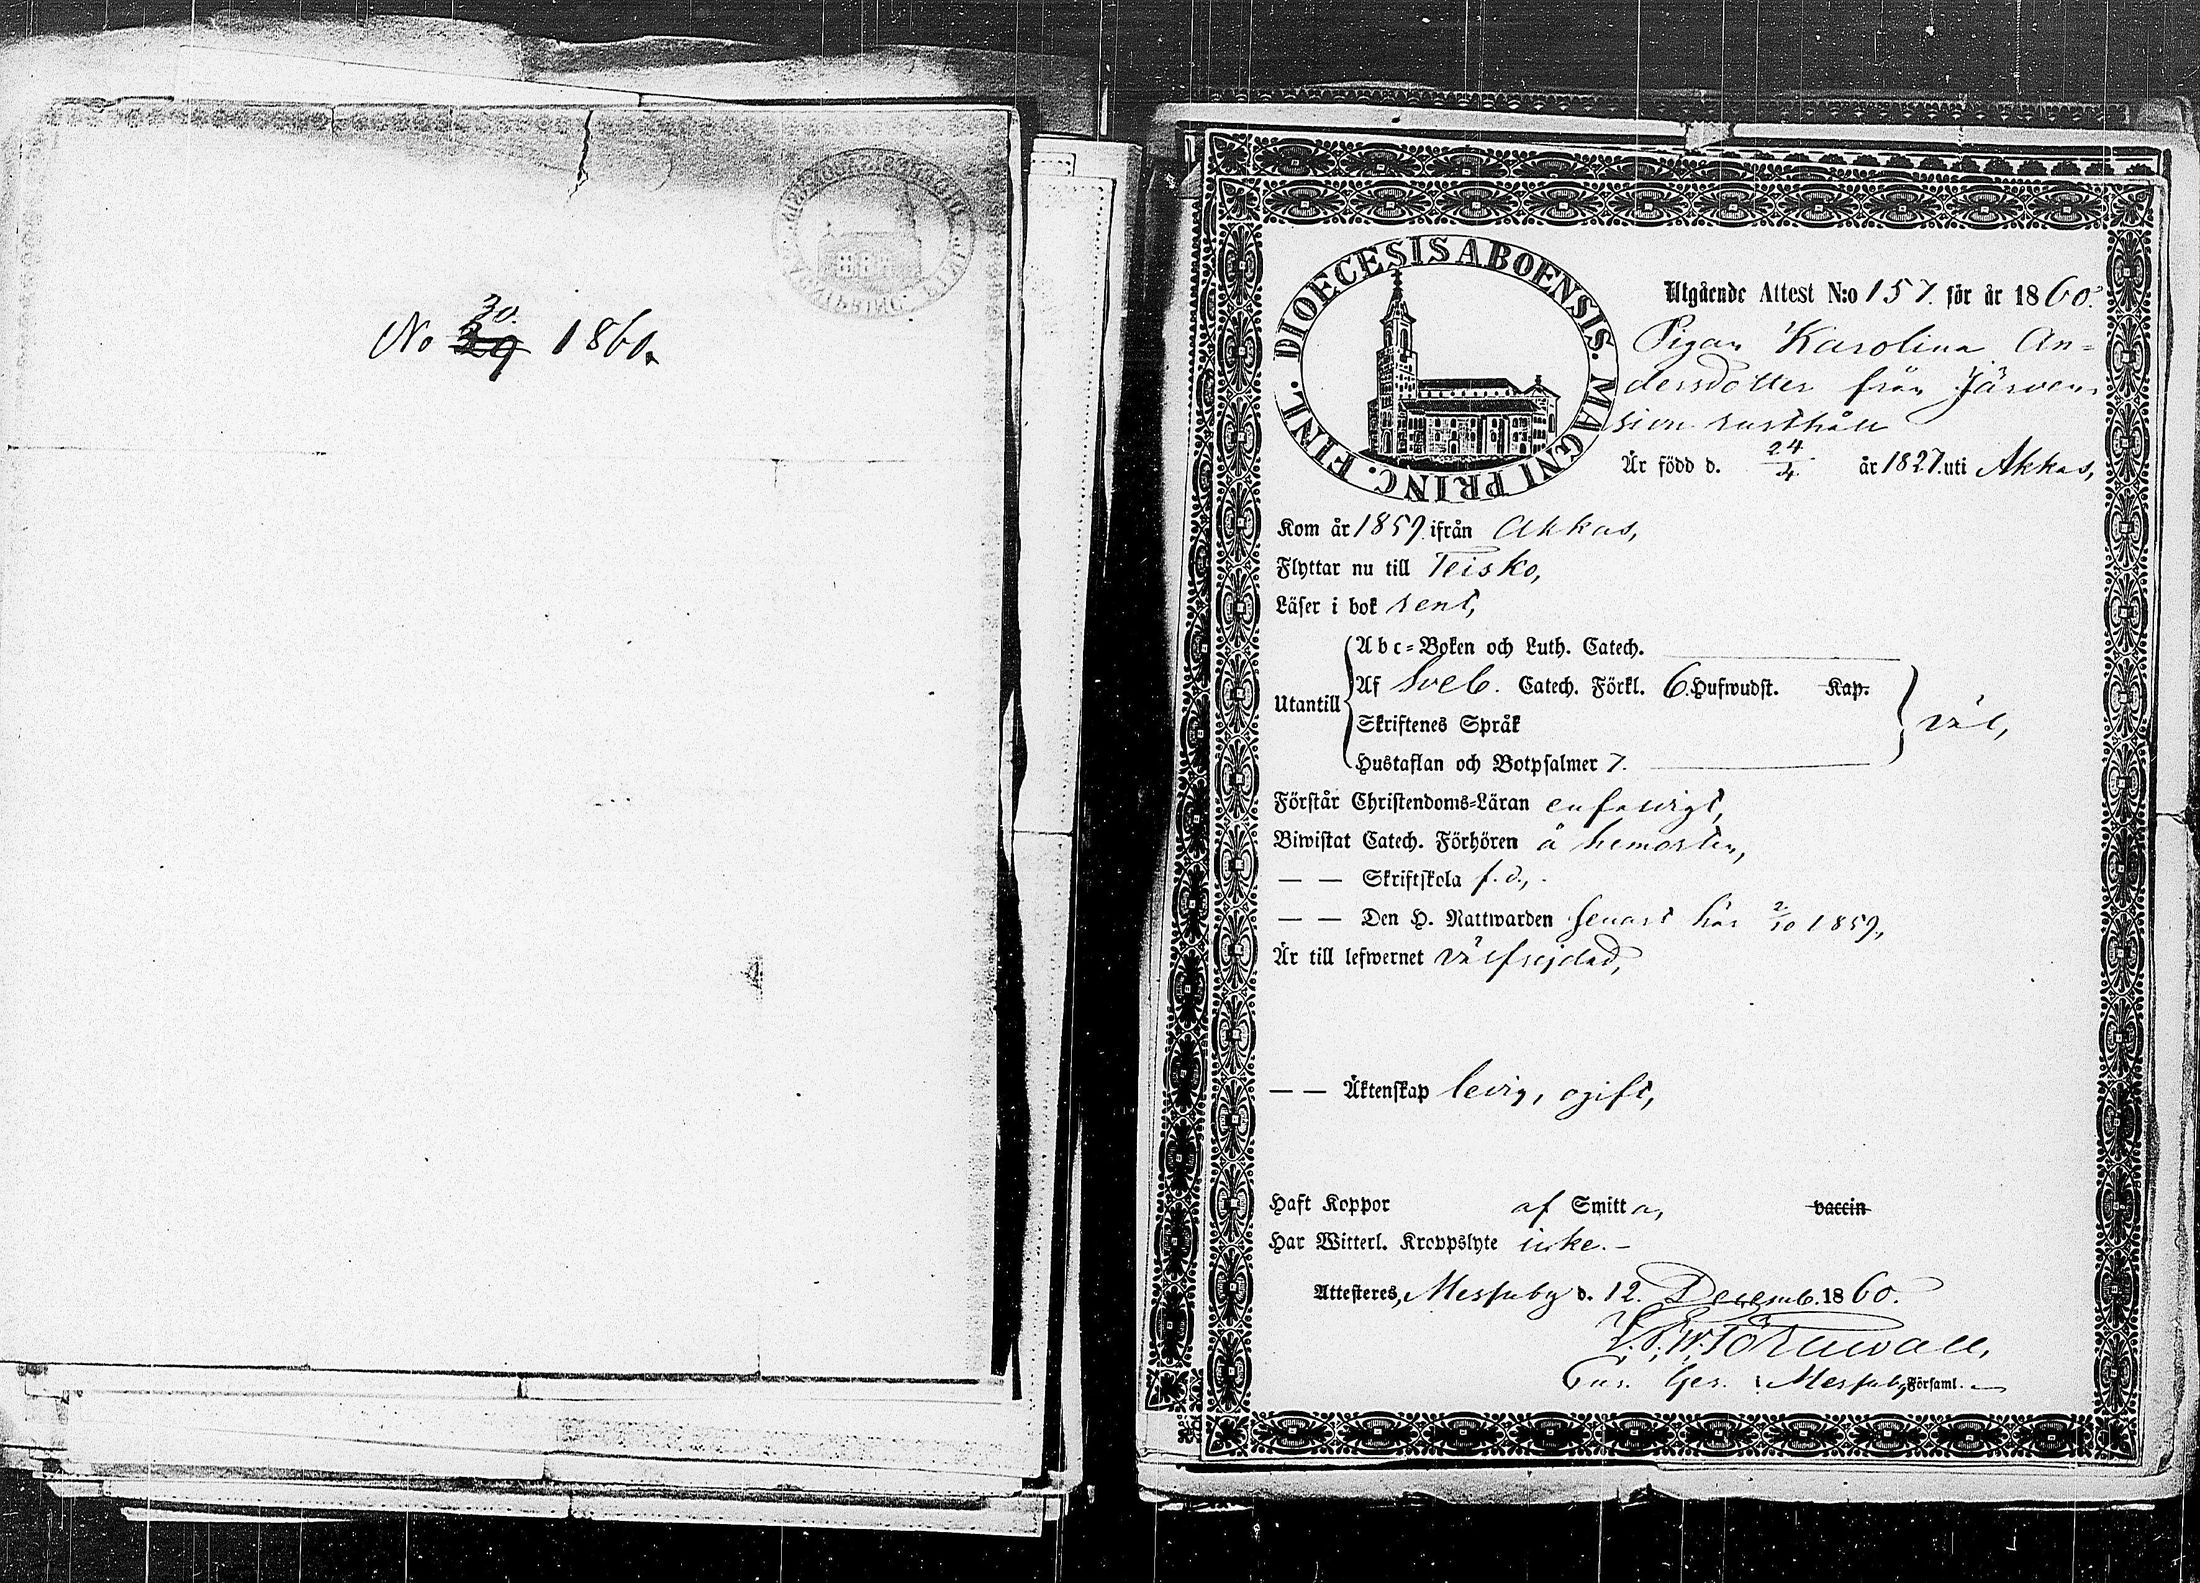 30.
No 29 1860.
DIOECESIS ABOENSIS. MAGNI PRINC. FINL.
Utgående Attest N:o 157. för år 1860.
Pigan Karolina An-
dersdotter från Järven-
sivu rusthåll
Är född d. 24/4 år 1827. uti Akkas,
Kom år 1859. ifrån Akkas,
Flyttar nu till Teisko,
Läser i bok rent,
Abc-Boken och Luth. Catech.
Utantill Af Sveb. Catech. Förkl. 6. Hufwudst. Kap.
Skriftenes Språk
väl,
Hustaflan och Botpsalmer 7.
Förstår Christendoms-Läran enfaldigt,
Biwistat Catech. Förhören å hemorten,
— — Skriftskola f. d.,
— — Den H. Nattwarden senast här 2/10 1859,
Är till lefwernet välfrejdad,
— — Äktenskap ledig, ogift,
Haft Koppor af Smitta, vaccin
Har Witterl. Kroppslyte icke. –
Attesteres, Messuby d. 12. Decemb. 1860.
Törnwall,
Messuby Församl.